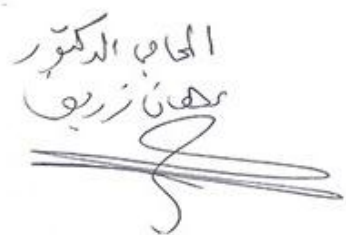 المحامي الدكتور
عدنان زريق